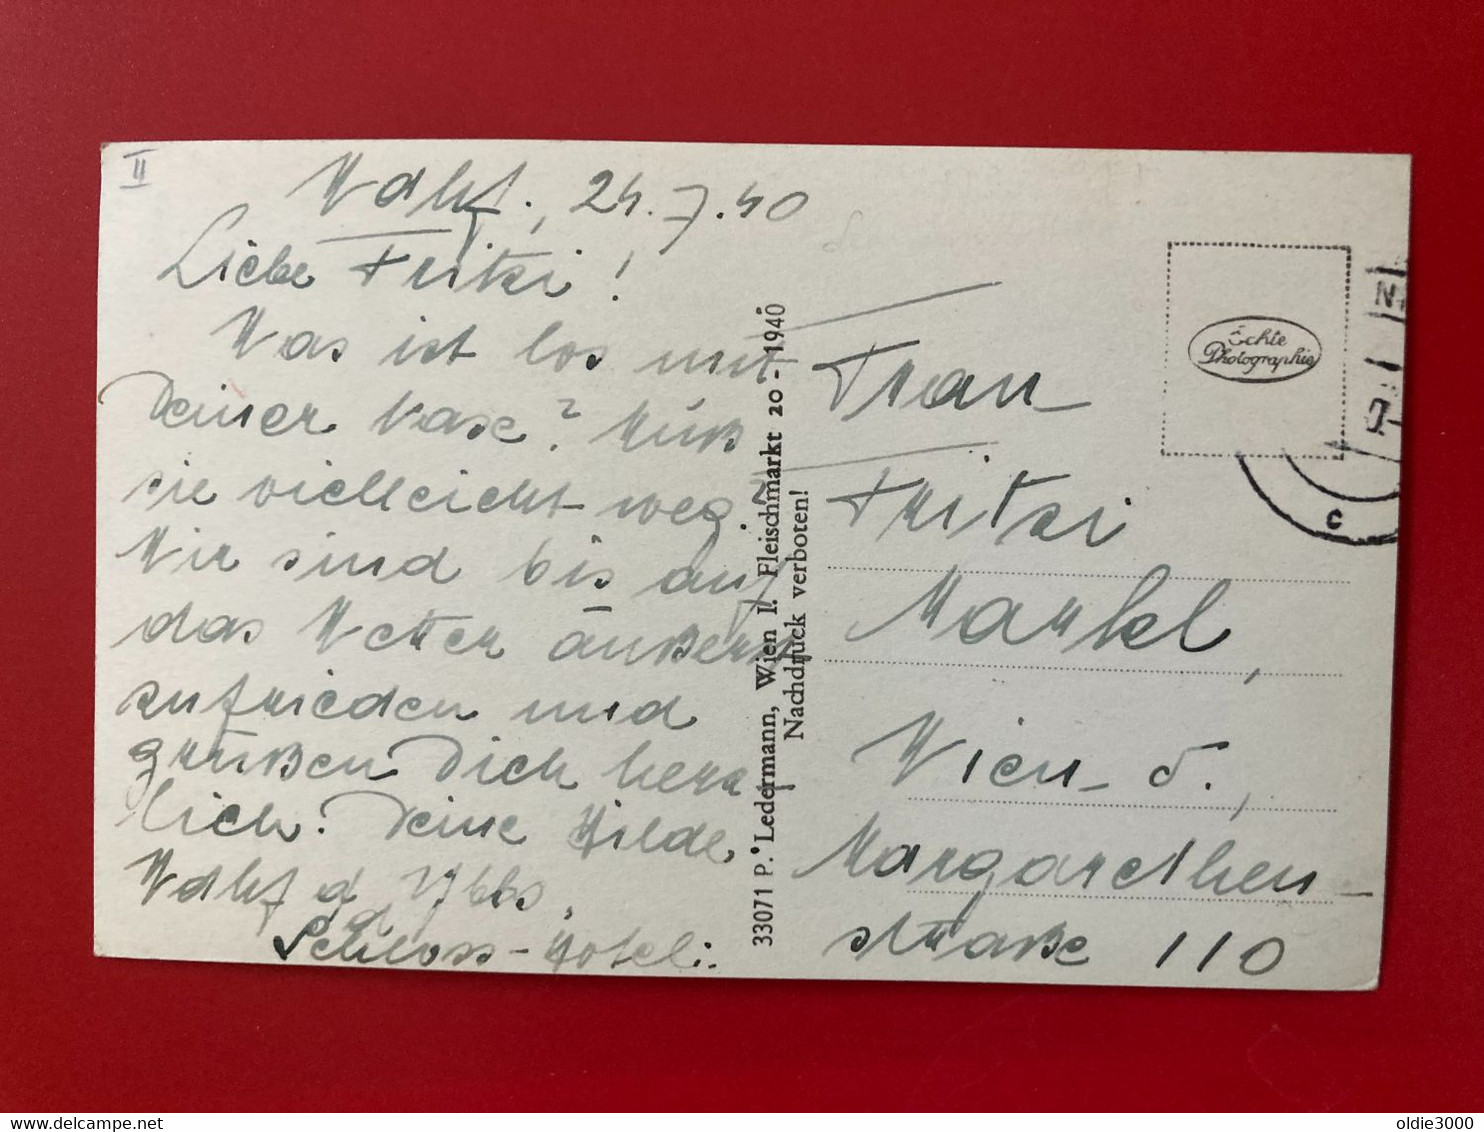 II
Wdhf., 24.7.40
Liebe Fritzi!
Was ist los mit
Deiner Nase? Muß
sie vielleicht weg?
Wir sind bis auf
das Wetter äußerst
zufrieden und
grüßen Dich herz-
lich. Deine Hilde.
Wdhf a d Ybbs,
Schloss-Hotel.
33071 P. Ledermann, Wien I. Fleischmarkt 20 - 1940
Nachdruck verboten!
Echte
Photographie
C
Frau
Fritzi
Markl,
Wien 5.,
Margarethen-
straße 110
oldie3000